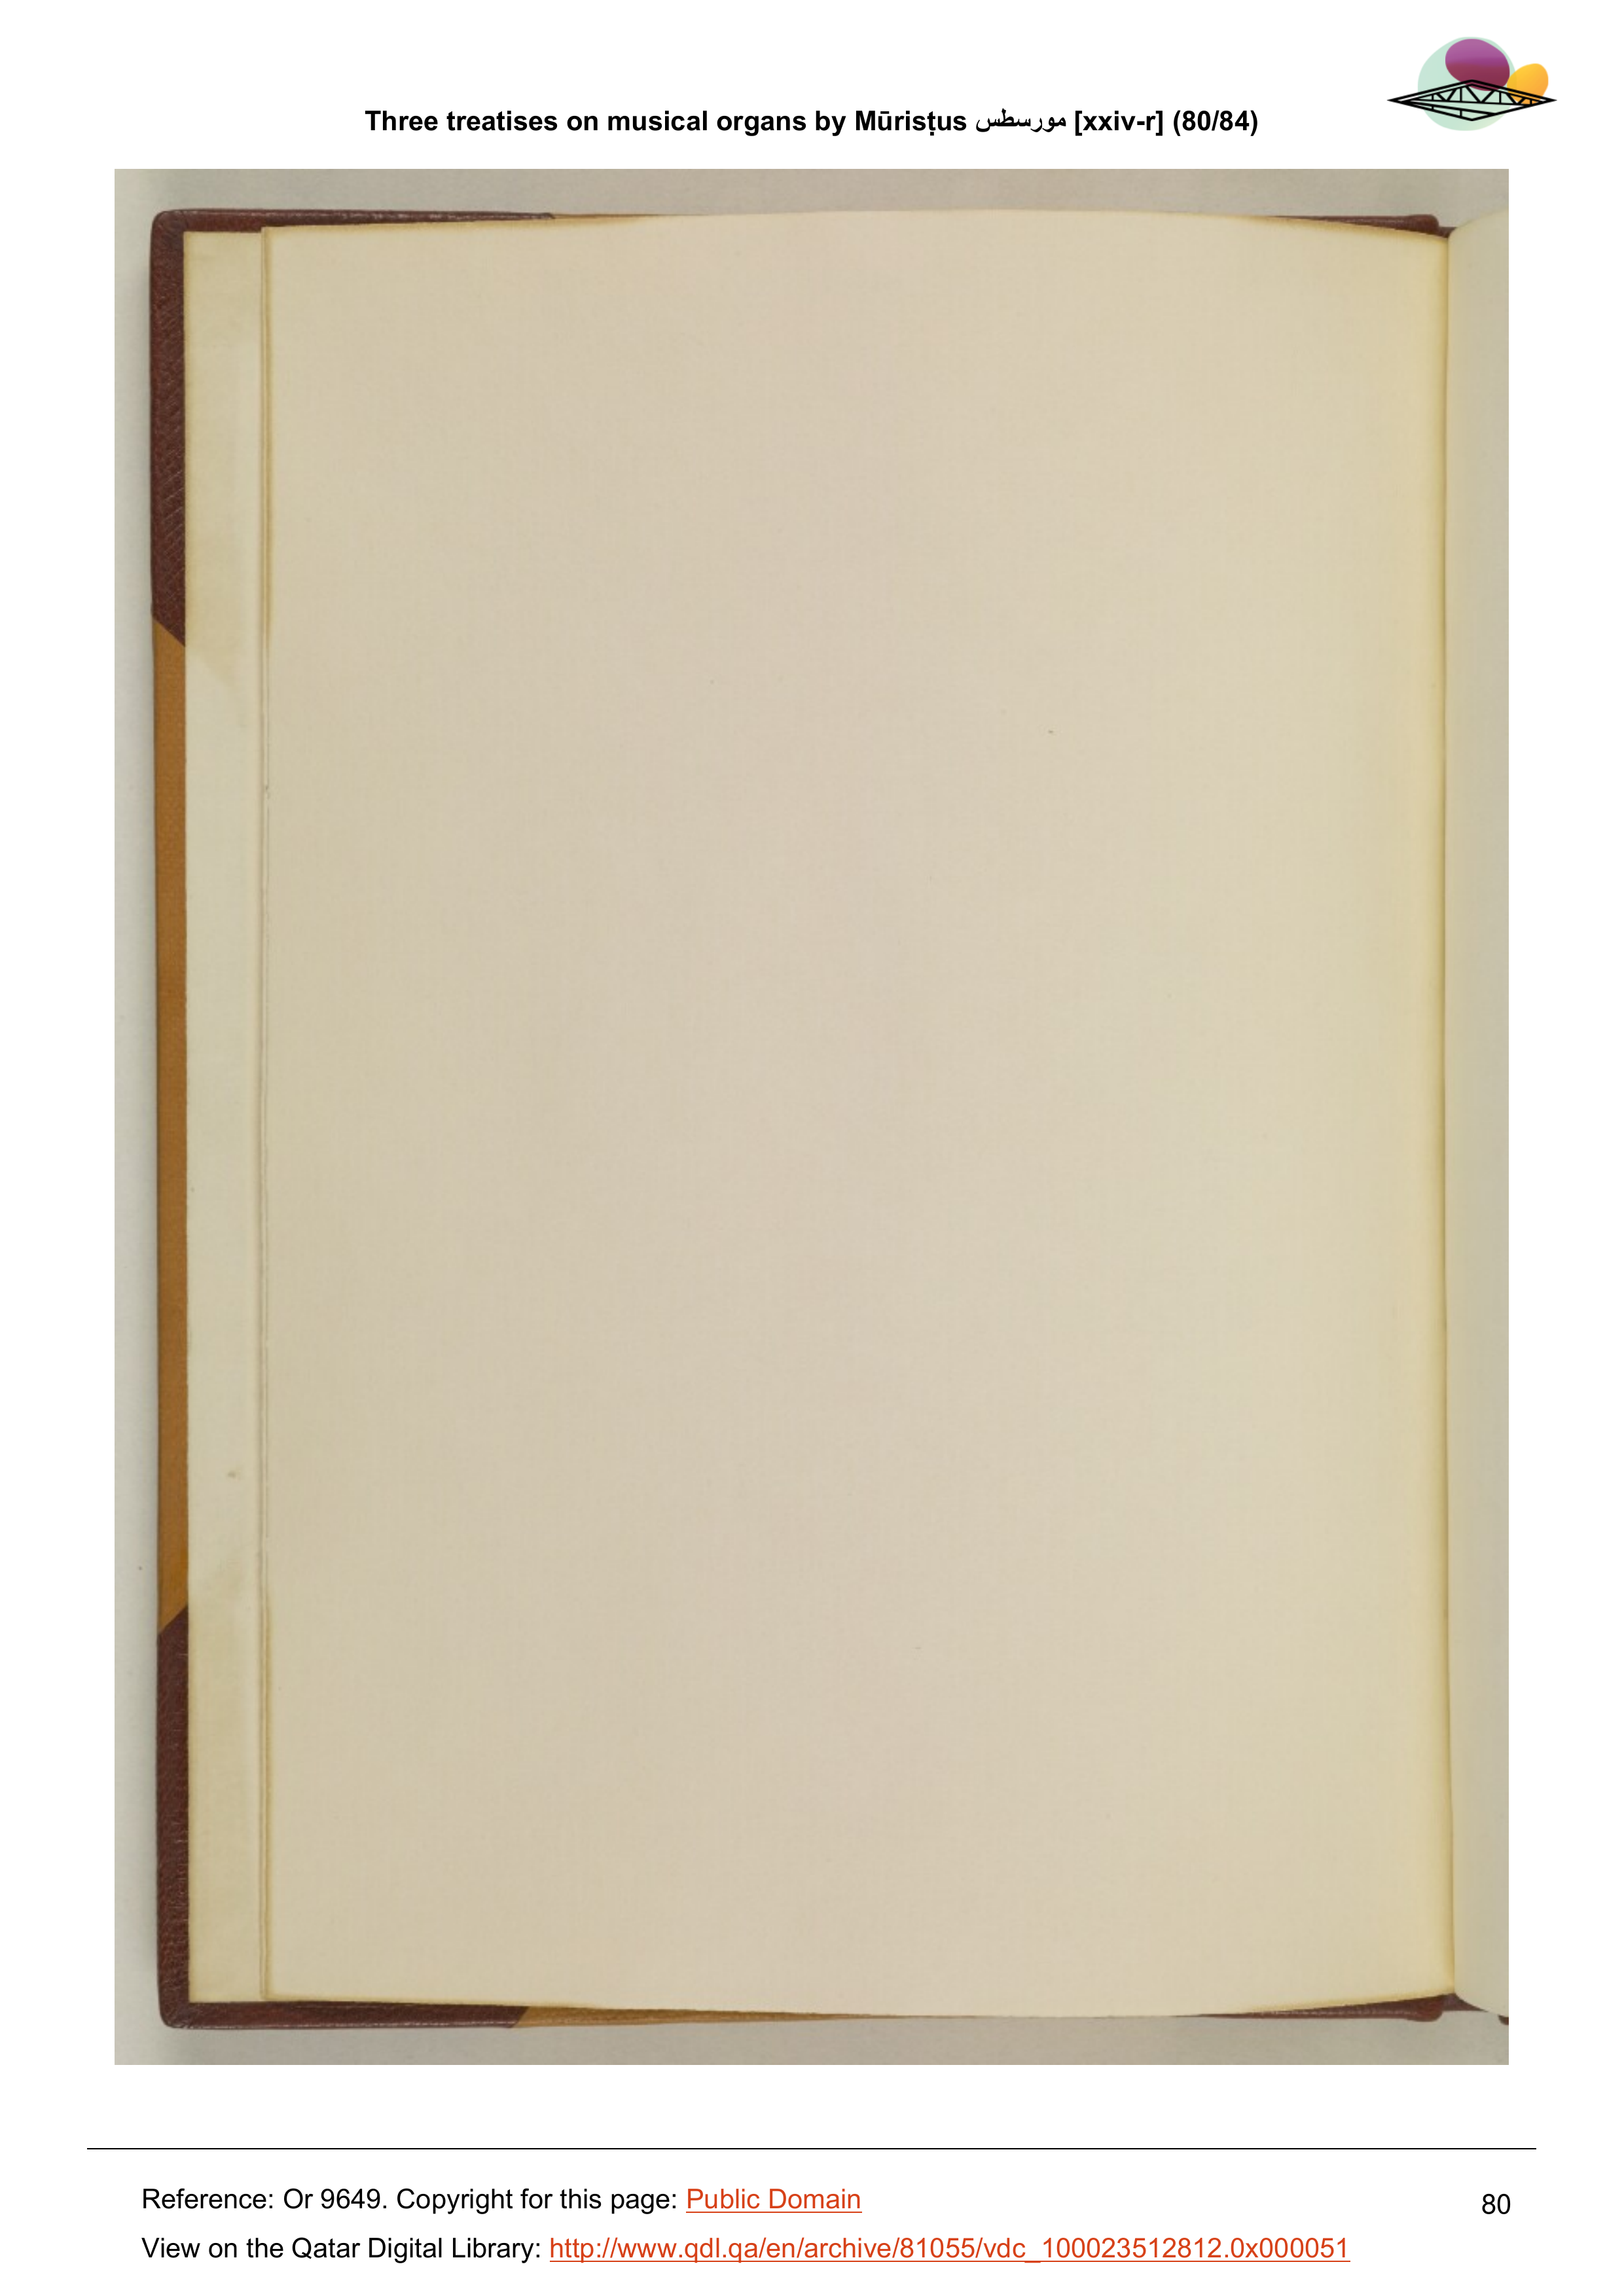 Three treatises on musical organs by Mūrisṭus مورسطس [xxiv-r] (80/84)
Reference: Or 9649. Copyright for this page: Public Domain
80
View on the Qatar Digital Library: http://www.qdl.qa/en/archive/81055/vdc_100023512812.0x000051